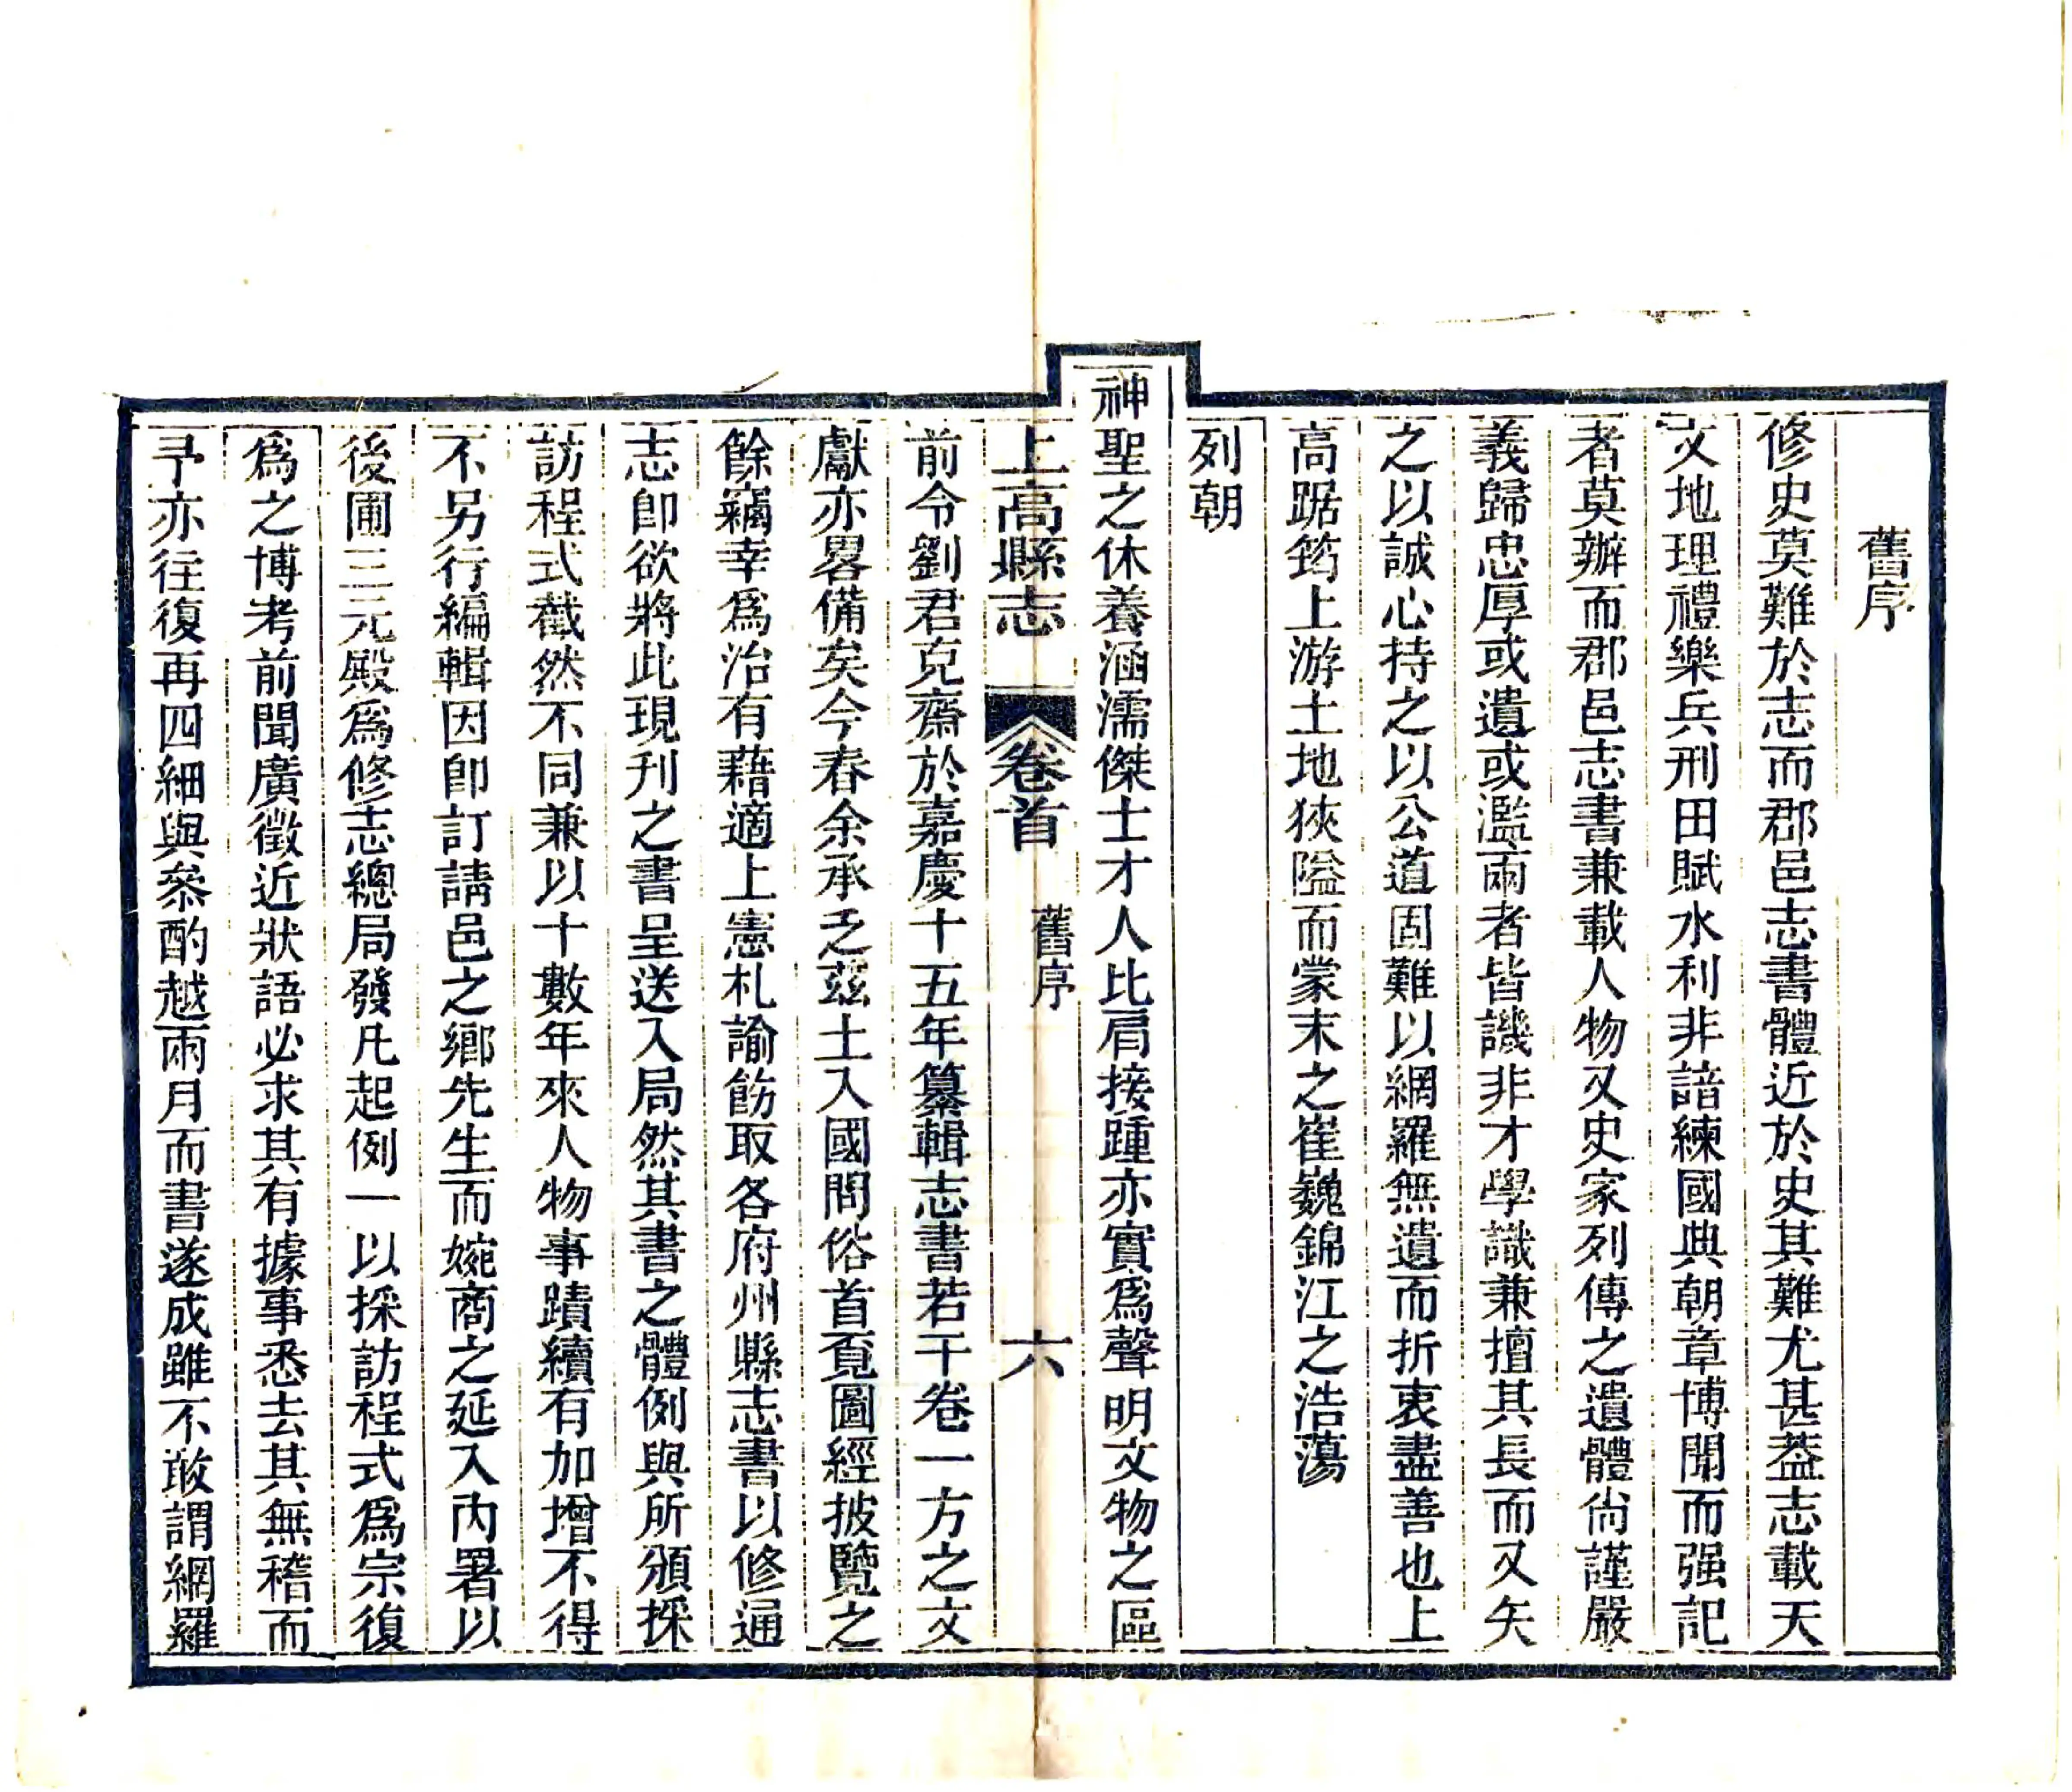 舊序
修史莫難於志而郡邑志書體近於史其難尤甚葢志載天
文地理禮樂兵刑田賦水利非諳練國典朝章博聞而强記
者莫辦而郡邑志書兼載人物又史家列傳之遺體尙謹嚴
義歸忠厚或遺或濫兩者皆譏非才學識兼擅其長而又矢
之以誠心持之以公道固難以網羅無遺而折衷盡善也上
高踞筠上游土地狹隘而蒙末之崔巍錦江之浩蕩
列朝
神聖之休養涵濡傑士才人比肩接踵亦實爲聲明文物之區
上高縣志 卷首 舊序 六
前令劉君克齋於嘉慶十五年纂輯志書若干卷一方之文
獻亦畧備矣今春余承乏茲土入國問俗首覔圖經披覽之
餘竊幸爲治有藉適上憲札諭飭取各府州縣志書以修通
志卽欲將此現刊之書呈送入局然其書之體例與所頒採
訪程式截然不同兼以十數年來人物事蹟續有加增不得
不另行編輯因卽訂請邑之鄉先生而婉商之延入內署以
後圃三元殿爲修志總局發凡起例一以採訪程式爲宗復
爲之博考前聞廣徵近狀語必求其有據事悉去其無稽而
予亦往復再四細與叅酌越兩月而書遂成雖不敢謂網羅